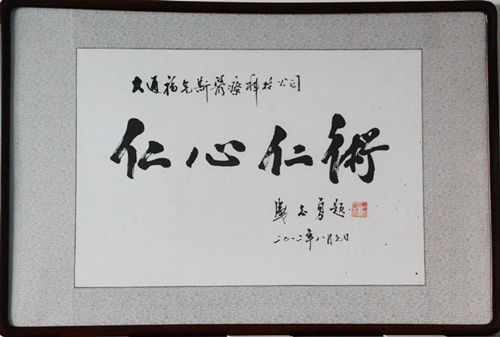 大通福克斯醫療科技公司
仁心仁術
盛志勇題
二〇一二年八月九日